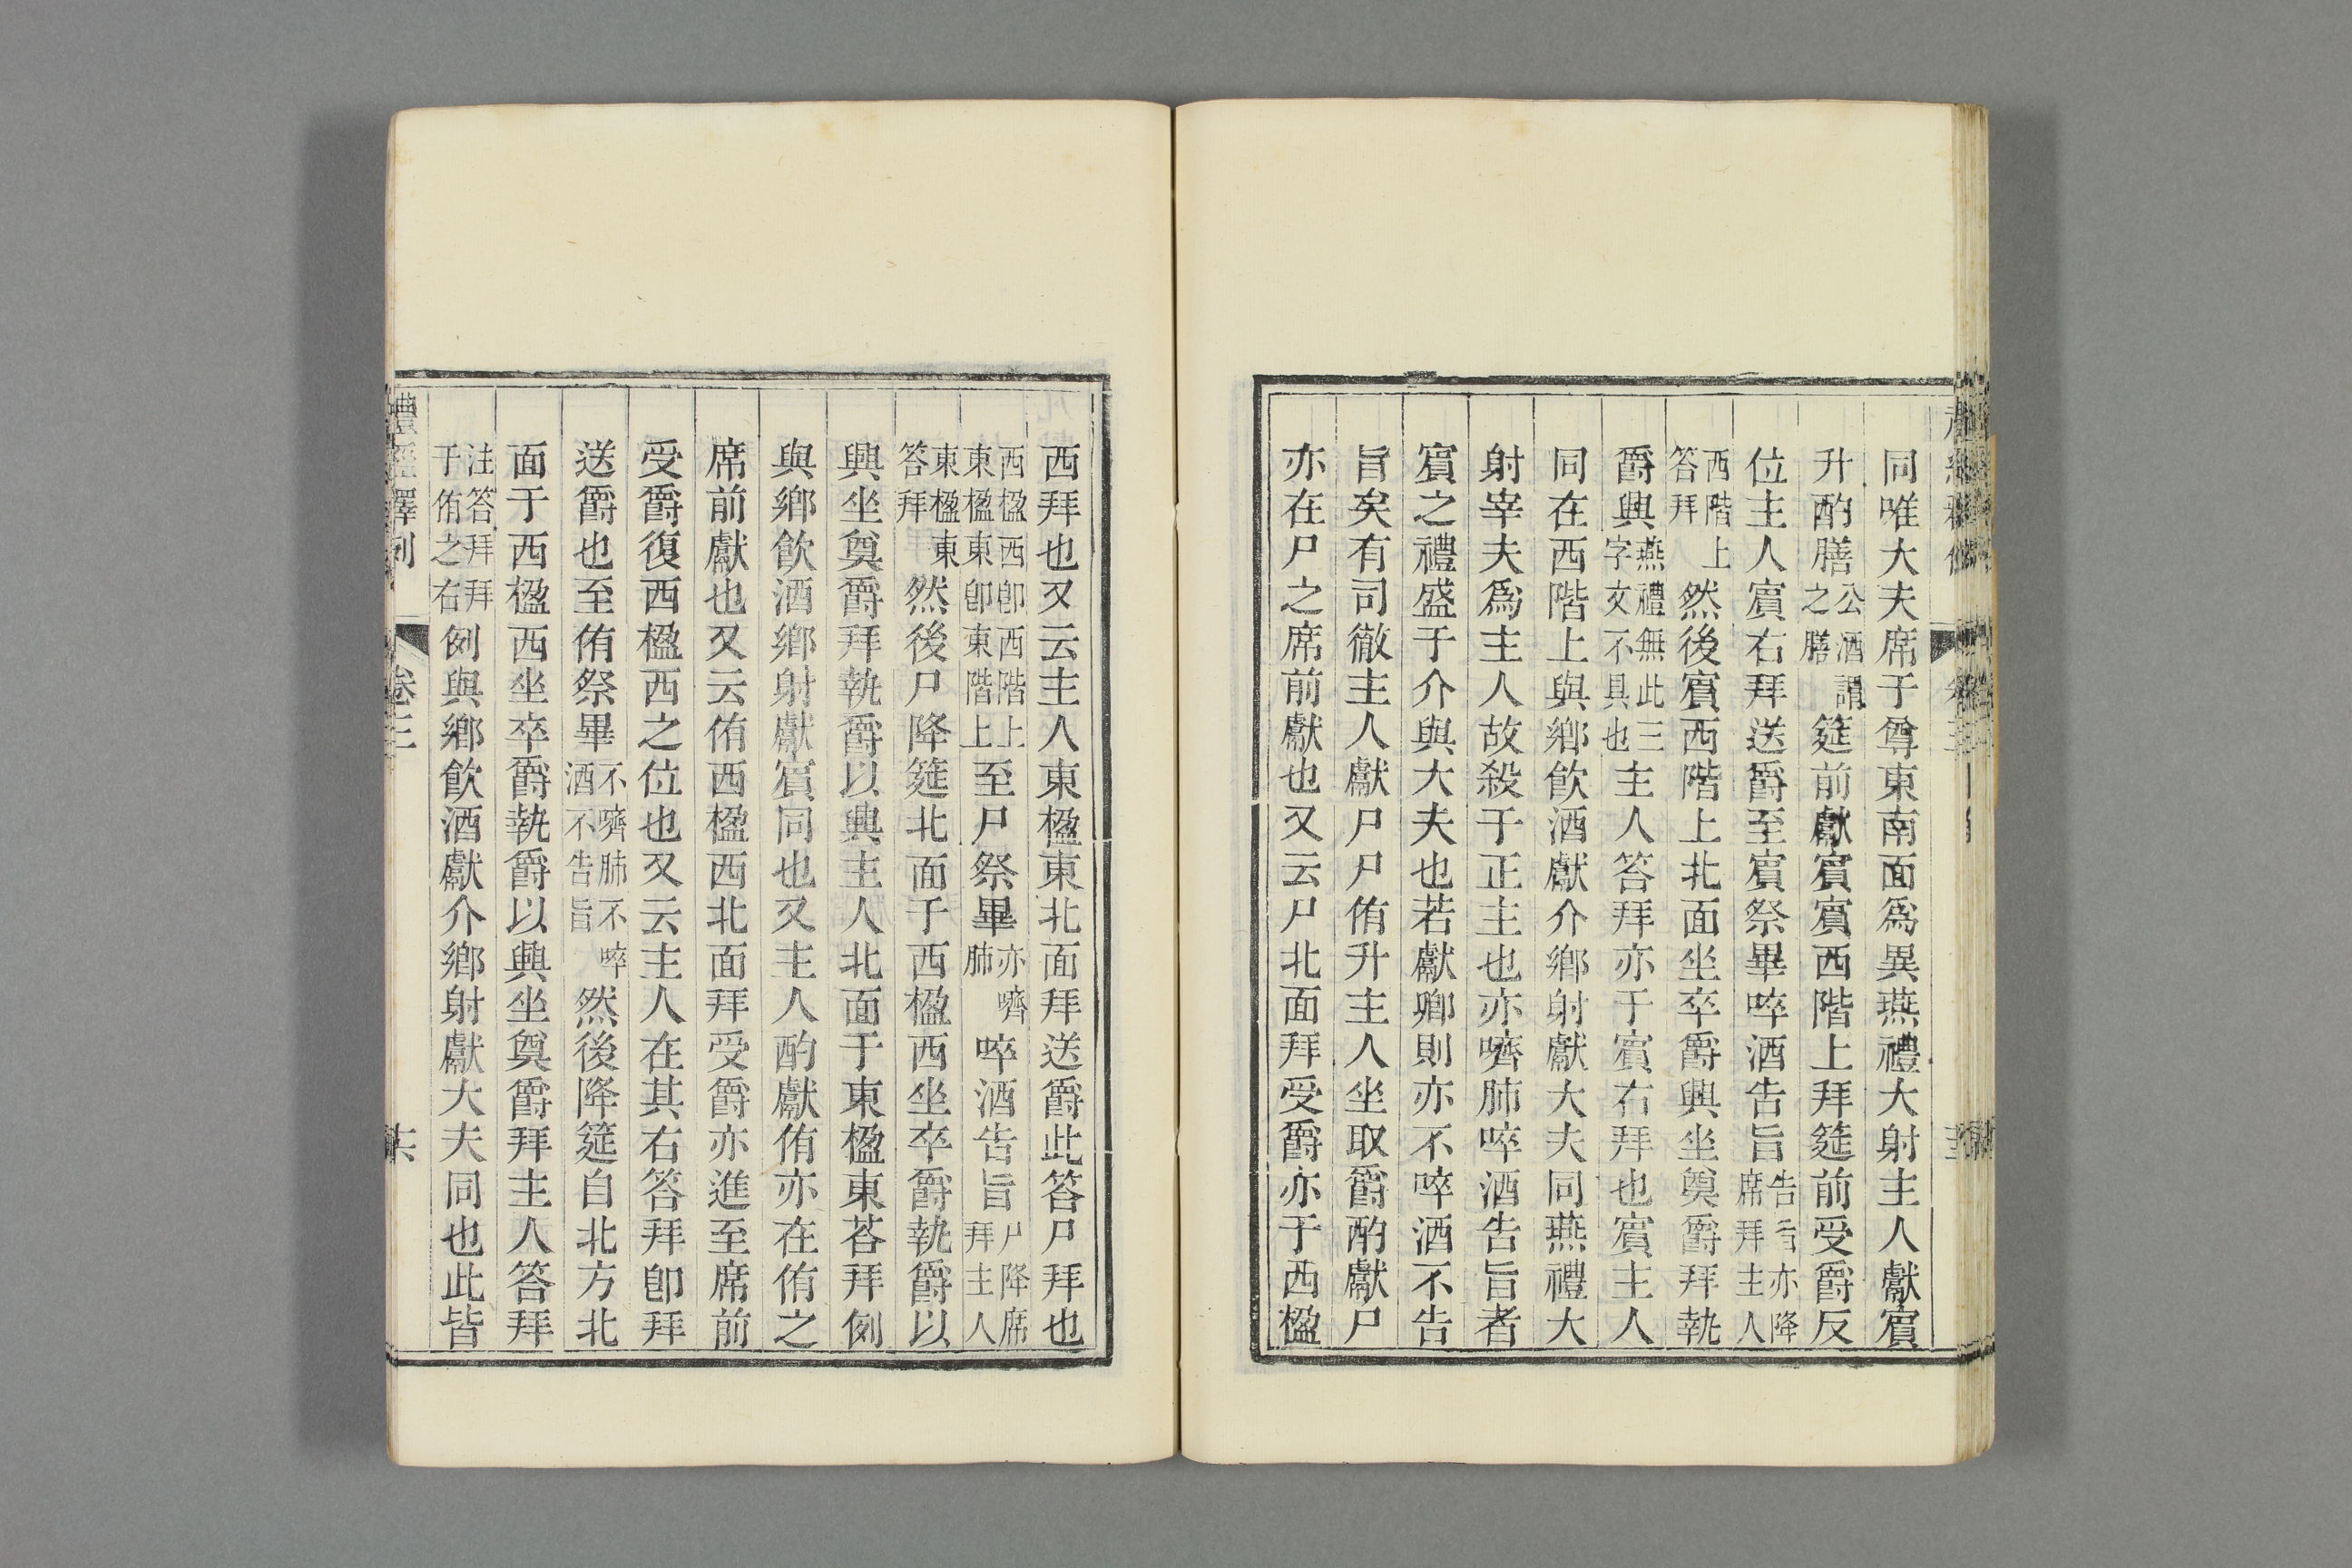 同唯大夫席于尊東南面爲異燕禮大射主人獻賓
升酌膳公酒謂之膳筵前獻賓賓西階上拜筵前受爵反
位主人賓右拜送爵至賓祭畢啐酒告旨告旨亦降席拜主人
西階上答拜然後賓西階上北面坐卒爵興坐奠爵拜執
爵興燕禮無此三字文不具也主人答拜亦于賓右拜也賓主人
同在西階上與鄉飲酒獻介鄉射獻大夫同燕禮大
射宰夫爲主人故殺于正主也亦嚌肺啐酒告旨者
賓之禮盛于介與大夫也若獻卿則亦不啐酒不告
旨矣有司徹主人獻尸尸侑升主人坐取爵酌獻尸
亦在尸之席前獻也又云尸北面拜受爵亦于西楹
西拜也又云主人東楹東北面拜送爵此答尸拜也
西楹西卽西階上東楹東卽東階上至尸祭畢亦嚌肺啐酒告旨尸降席拜主人
東楹東答拜然後尸降筵北面于西楹西坐卒爵執爵以
興坐奠爵拜執爵以興主人北面于東楹東荅拜例
與鄉飲酒鄉射獻賓同也又主人酌獻侑亦在侑之
席前獻也又云侑西楹西北面拜受爵亦進至席前
受爵復西楹西之位也又云主人在其右答拜卽拜
送爵也至侑祭畢不嚌肺不啐酒不告旨然後降筵自北方北
面于西楹西坐卒爵執爵以興坐奠爵拜主人答拜
注答拜拜于侑之右例與鄉飲酒獻介鄉射獻大夫同也此皆
禮經釋例 卷三 十六